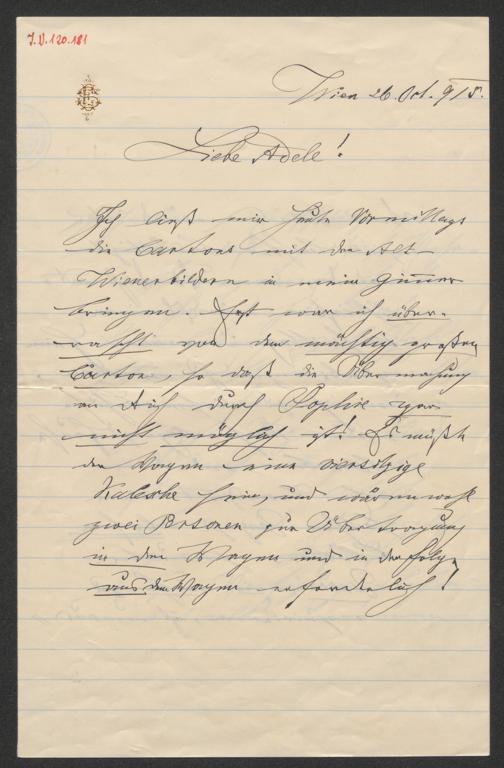 I.N.120.181
Wien 26. Oct. 915.
Liebe Adele!
Ich ließ mir heute Vormittags
die Cartons mit den Alt-
Wienerbildern in mein Zimmer
bringen. Jetzt war ich über-
rascht von dem mächtig großen
Carton, so daß die Übermachung
an Dich durch Sophie gar
nicht möglich ist! Es müßte
der Wagen eine viersitzige
Kalesche sein, und wären wohl
zwei Personen zur Übertragung
in den Wagen und in der Folge
aus dem Wagen erforderlich!